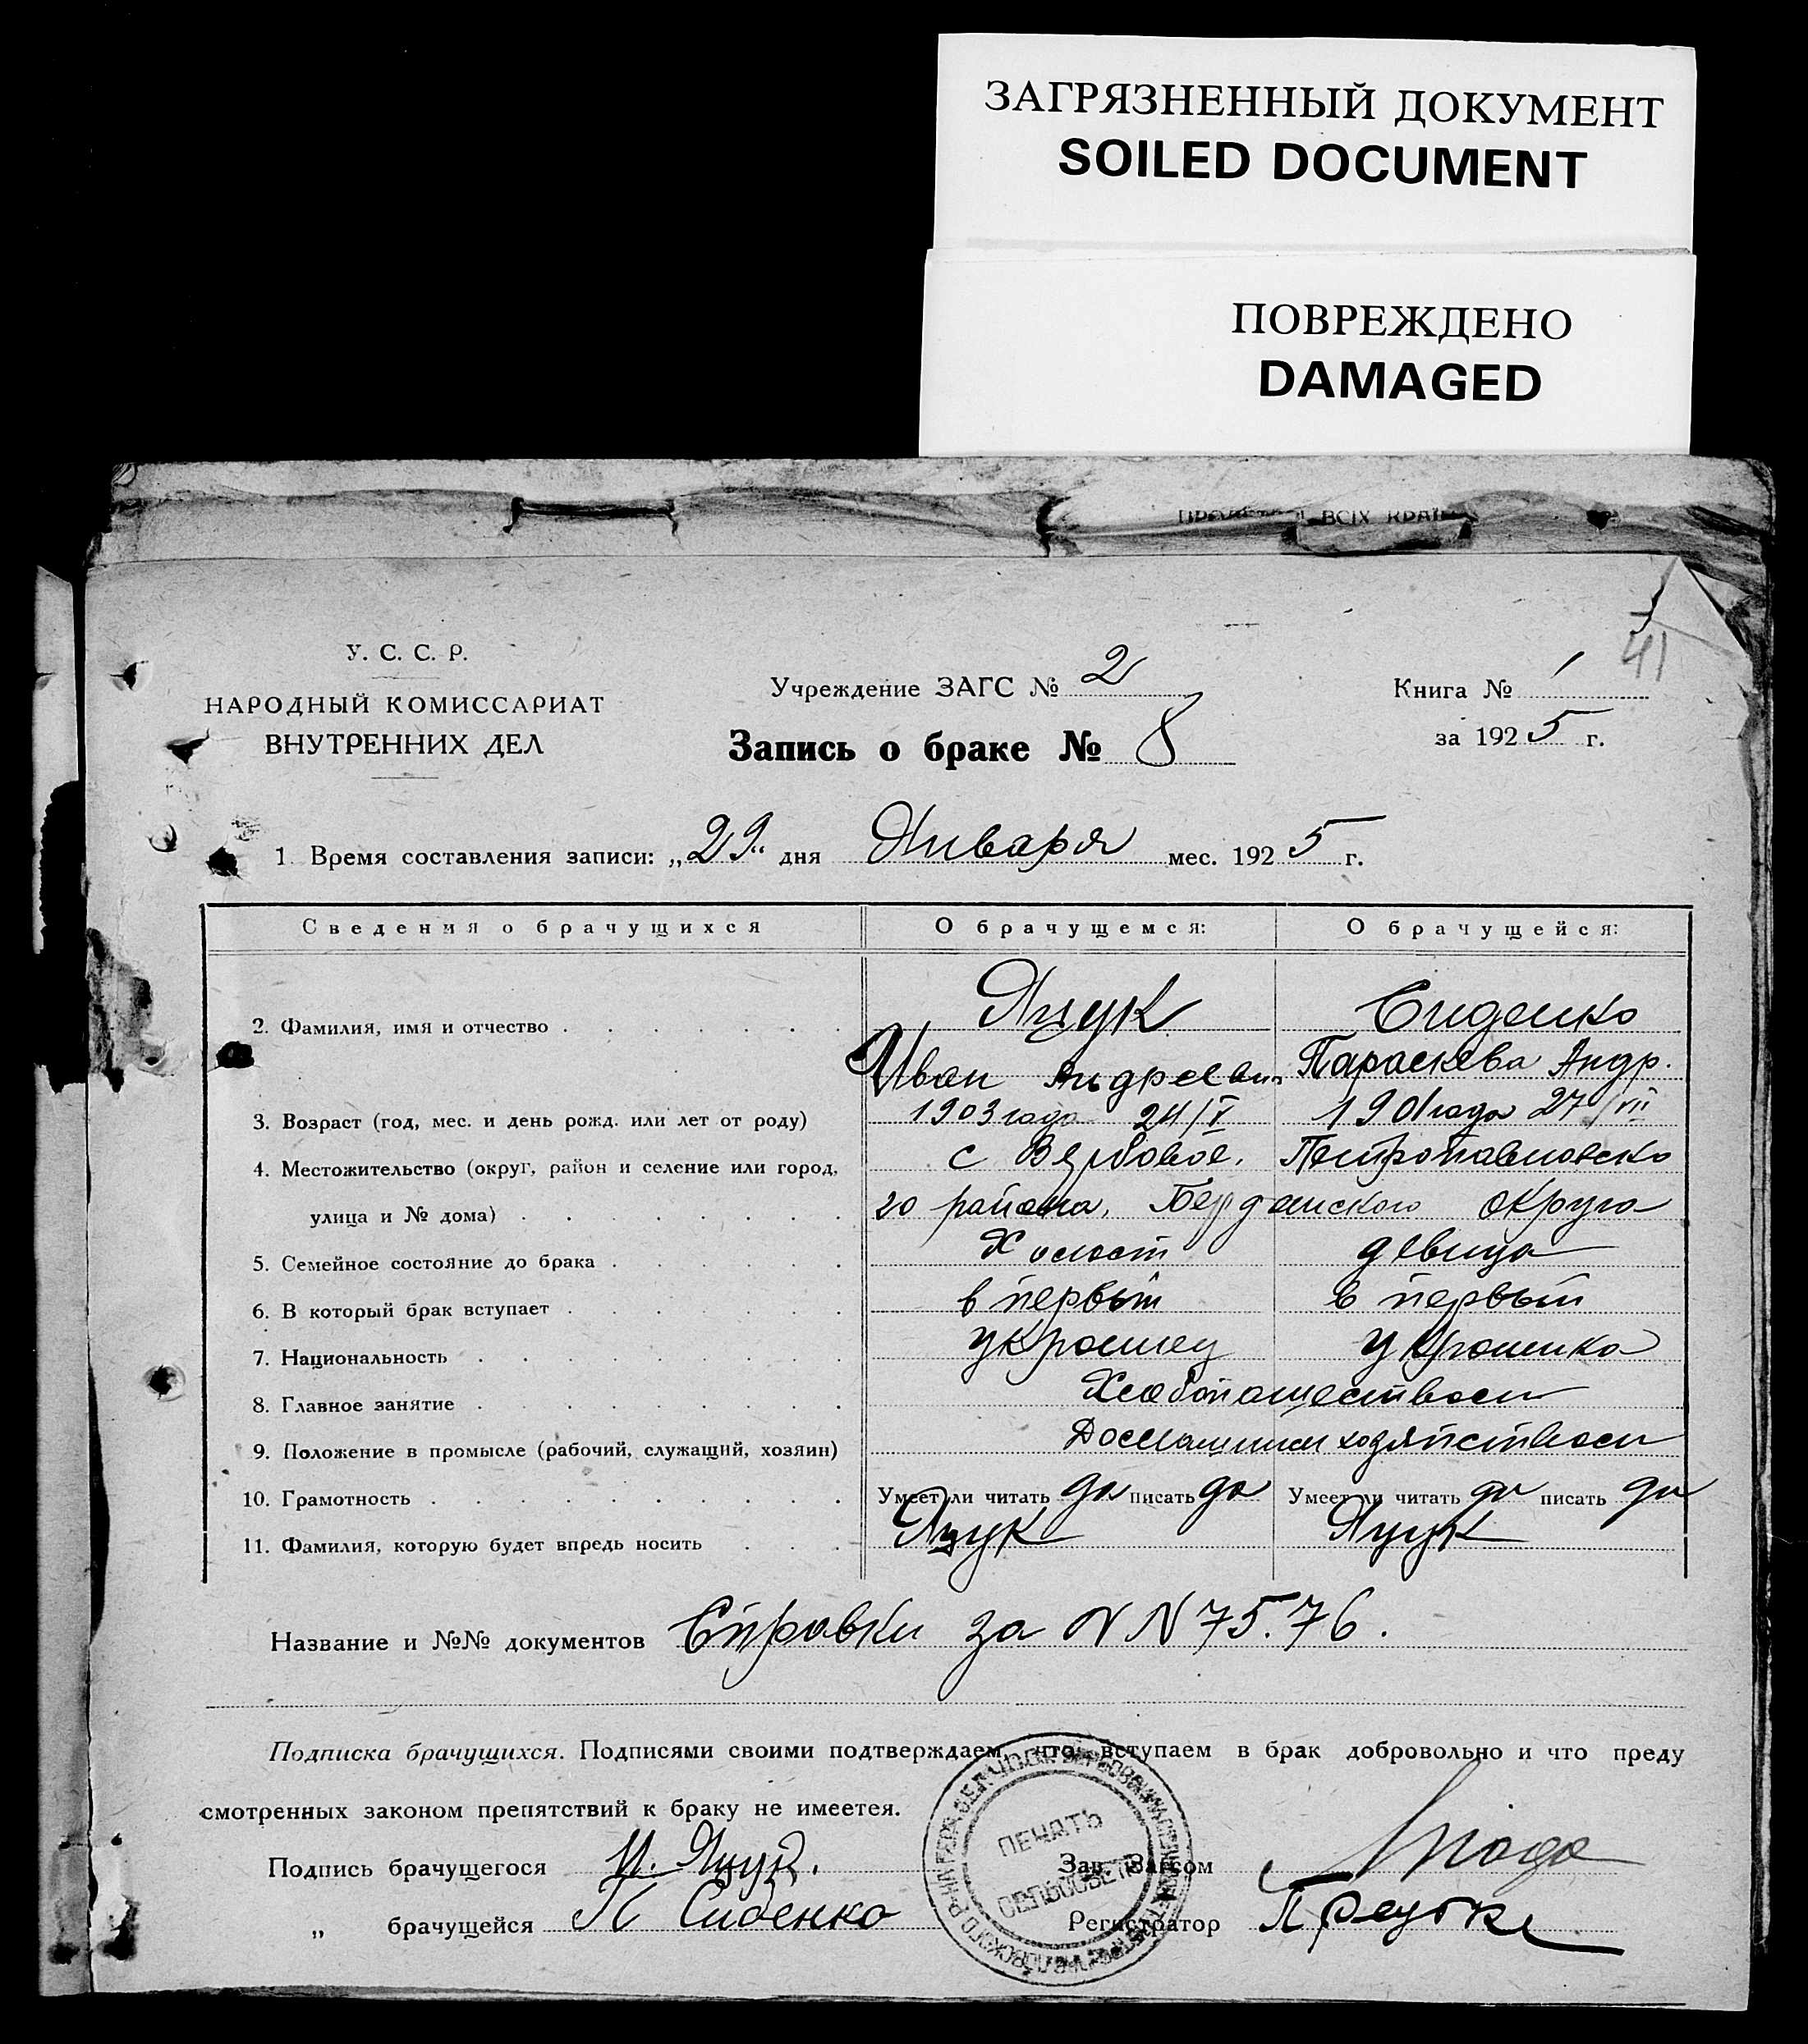 ЗАГРЯЗНЕННЫЙ ДОКУМЕНТ
SOILED DOCUMENT
ПОВРЕЖДЕНО
DAMAGED
ВСІХ КРАЇН
41
У. С. С. Р.
НАРОДНЫЙ КОМИССАРИАТ
ВНУТРЕННИХ ДЕЛ
Учреждение ЗАГС № 2
Запись о браке № 8
Книга № 1
за 1925 г.
1. Время составления записи: „29“ дня Января мес. 1925 г.
Сведения о брачущихся О брачущемся: О брачущейся:
2. Фамилия, имя и отчество Яцук Сиденко
Иван Андреевич Параскева Андр.
3. Возраст (год, мес. и день рожд. или лет от роду) 1903 года 24/V 1901 года 27/VII
4. Местожительство (округ, район и селение или город, с Вербовое, Петропавловско
улица и № дома) го района, Бердянского округа
5. Семейное состояние до брака Холост девица
6. В который брак вступает в первый в первый
7. Национальность украинец украинка
8. Главное занятие Хлебопашеством
9. Положение в промысле (рабочий, служащий, хозяин) Домашним хозяйством
10. Грамотность Умеет ли читать да писать да Умеет ли читать да писать да
11. Фамилия, которую будет впредь носить Яцук Яцук
Название и №№ документов Справки за N N 75. 76.
Подписка брачущихся. Подписями своими подтверждаем, что вступаем в брак добровольно и что преду
смотренных законом препятствий к браку не имеетея.
Подпись брачущегося И. Яцук.
„ брачущейся П Сиденко
ПЕЧАТЬ
СЕЛЬСОВЕТА
Зав. Загсом
Регистратор